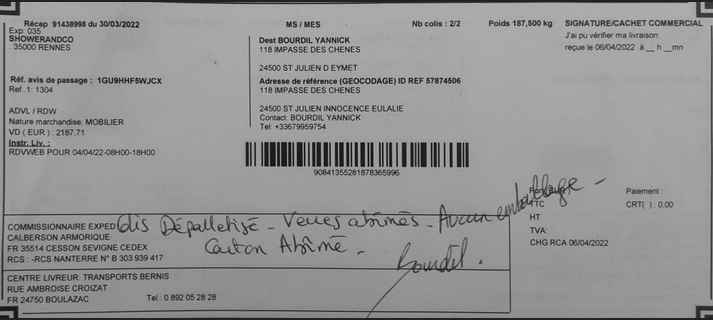 Récep 91438998 du 30/03/2022
MS / MES
Nb colis : 2/2
Poids 187,500 kg
SIGNATURE/CACHET COMMERCIAL
Exp: 035
SHOWERANDCO
. 35000 RENNES
Réf. avis de passage : 1GU9HHF5WJCX
Ref..1: 1304
ADVL / RDW
Nature marchandise: MOBILIER
VD ( EUR ) : 2187,71
Instr. Liv. :
RDVWEB POUR 04/04/22-08H00-18H00
Dest BOURDIL YANNICK
118 IMPASSE DES CHENES
24500 ST JULIEN D EYMET
Adresse de référence (GEOCODAGE) ID REF 57874506
118 IMPASSE DES CHENES
24500 ST JULIEN INNOCENCE EULALIE
Contact: BOURDIL YANNICK
Tel: +33679959754
90841355281878365996
J'ai pu vérifier ma livraison
reçue le 06/04/2022 à __ h __mn
Paiement :
CRT( ) : 0,00
TTC
HT
TVA:
CHG RCA 06/04/2022
COMMISSIONNAIRE EXPED
CALBERSON ARMORIQUE
FR 35514 CESSON SEVIGNE CEDEX
RCS : -RCS NANTERRE N° B 303 939 417
Colis Dépalletisé - Verres abîmés - Aucun emballage -
Carton Abîmé -
Bourdil.
CENTRE LIVREUR: TRANSPORTS BERNIS
RUE AMBROISE CROIZAT
FR 24750 BOULAZAC
Tel.: 0 892 05 28 28